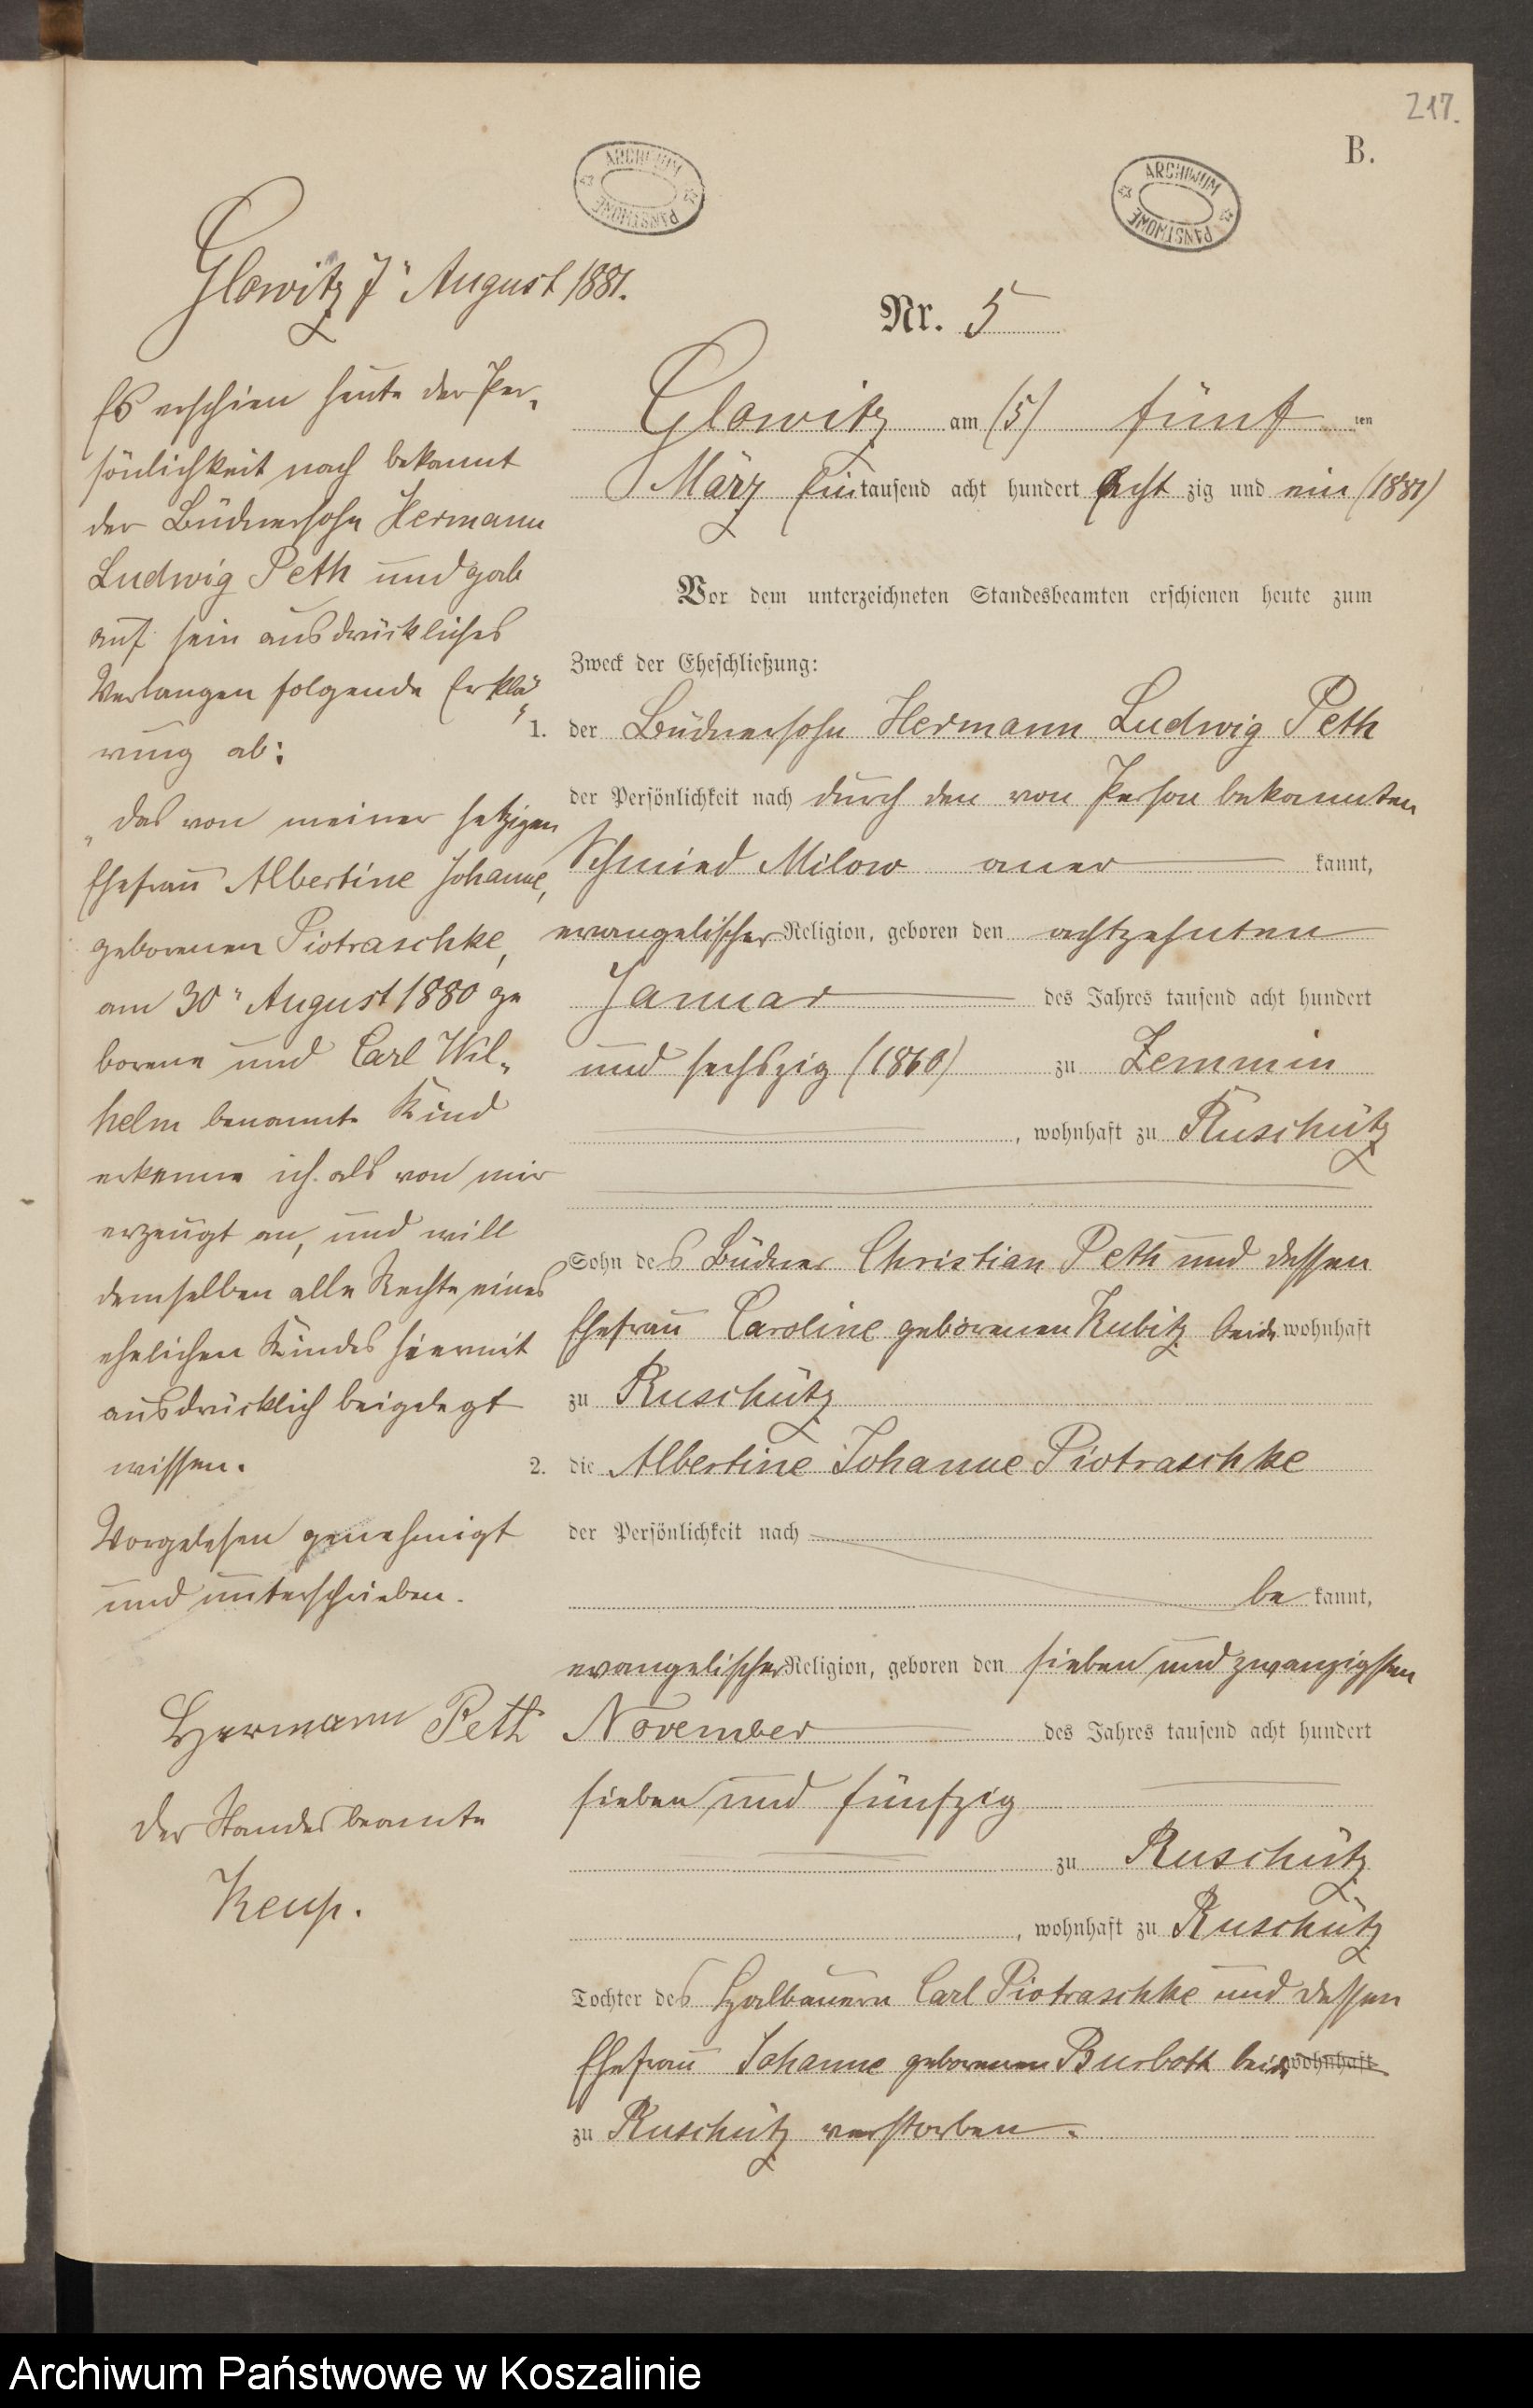 217.
B.
ARCHIWUM PAŃSTWOWE
ARCHIWUM PAŃSTWOWE
Glowitz 7" August 1881.
Es erschien heute der Per-
sönlichkeit nach bekannt
der Büdnersohn Hermann
Ludwig Peth und gab
auf sein ausdrückliches
Verlangen folgende Erklä-
rung ab:
„das von meiner jetzigen
Ehefrau Albertine Johanne,
geborenen Piotraschke,
am 30" August 1880 ge
borene und Carl Wil-
helm benannte Kind
erkenne ich als von mir
erzeugt an, und will
demselben alle Rechte eines
ehelichen Kindes hiermit
ausdrücklich beigelegt
wissen.
Vorgelesen genehmigt
und unterschrieben.
Hermann Peth
Der Standesbeamte
Keup.
Nr. 5
Glowitz am (5) fünf ten
März Eintausend acht hundert Acht zig und ein (1881)
Vor dem unterzeichneten Standesbeamten erschienen heute zum
Zweck der Eheschließung:
1. der Büdnersohn Hermann Ludwig Peth
der Persönlichkeit nach durch den von Person bekannten
Schmied Milow aner kannt,
evangelischer Religion, geboren den achtzehnten
Januar des Jahres tausend acht hundert
und sechszig (1860) zu Zemmin
, wohnhaft zu Ruschütz
Sohn des Büdner Christian Peth und dessen
Ehefrau Caroline geborenen Kubitz beide wohnhaft
zu Ruschütz
2. die Albertine Johanne Piotraschke
der Persönlichkeit nach
be kannt,
evangelischer Religion, geboren den sieben und zwanzigsten
November des Jahres tausend acht hundert
sieben und fünfzig
zu Ruschütz
, wohnhaft zu Ruschütz
Tochter des Halbbauern Carl Piotraschke und dessen
Ehefrau Johanne geborenen Burboth beide wohnhaft
zu Ruschütz verstorben.
Archiwum Państwowe w Koszalinie